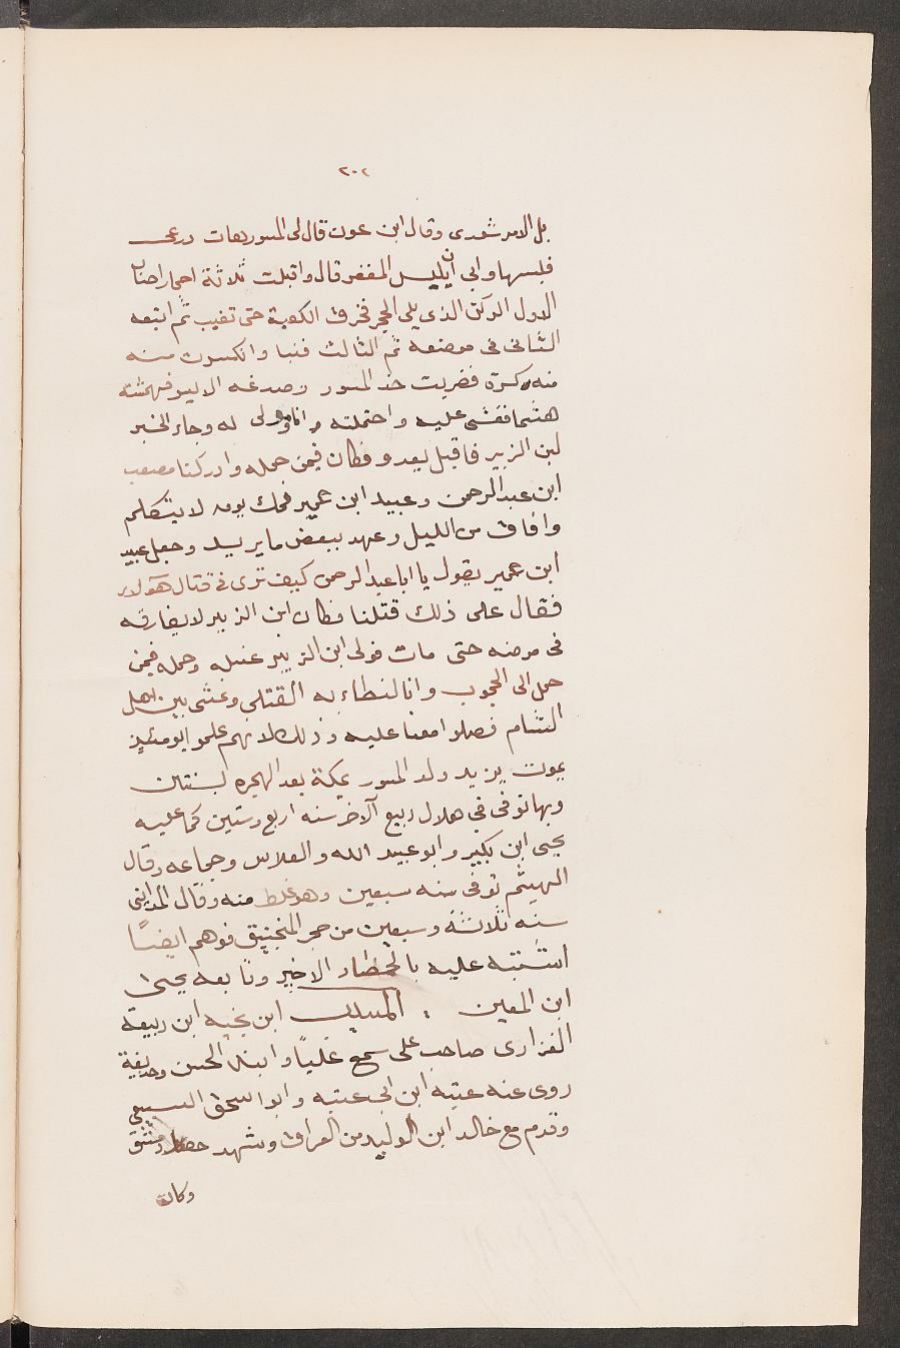 ٢٠٢
بل الامر شورى وقال ابن عون قال لى المسور هات درعى
فلبسها وابى ان يلبس المغفر قال واقبلت ثلاثة احجار اصاب
الاول الركن الذى يلى الحجر فخرق الكعبة حتى تغيب ثم اتبعه
الثانى فى موضعه ثم الثالث فنبا وانكسرت منه
منه كسرة فضربت خد المسور وصدغه الايسر فهشمته
هشما فغشى عليه واحتملته وانا ومولى له وجاء الخبر
لبن الزبير فاقبل يعدو فكان فيمن حمله وادركنا مصعب
ابن عبد الرحمن وعبيد ابن عمير فمكث يومه لا يتكلم
وافاق من الليل وعهد ببعض ما يريد وجعل عبيد
ابن عمير يقول يا ابا عبد الرحمن كيف ترى فى قتال هؤلاء
فقال على ذلك قتلنا فكان ابن الزبير لا يفارقه
فى مرضه حتى مات فولى ابن الزبير غسله وحمله فيمن
حمل الى الحجون وانا لنطاء به القتلى ونمشى بين اهل
الشام فصلوا معنا عليه وذلك لانهم علموا يومئذ
بموت يزيد ولد المسور بمكة بعد الهجره بسنتين
وبها توفى فى هلال ربيع الآخر سنه اربع وستين كما عليه
يحيى ابن بكير وابو عبيد الله والفلاس وجماعه وقال
الهيثم توفى سنه سبعين وهو غلط منه وقال المداينى
سنه ثلاثة وسبعين من حجر المنجنيق فوهم ايضًا
اشتبه عليه بالحصار الاخير وتابعه يحيى
ابن المعين . المسيب ابن نجيه ابن ربيعة
الفزارى صاحب على سمع عليًا وابنه الحسن وحذيفة
روى عنه عتبه ابن ابى عتبه وابو اسحق السبيعى
وقدم مع خالد ابن الوليد من العراق وشهد حصار دمشق
وكان